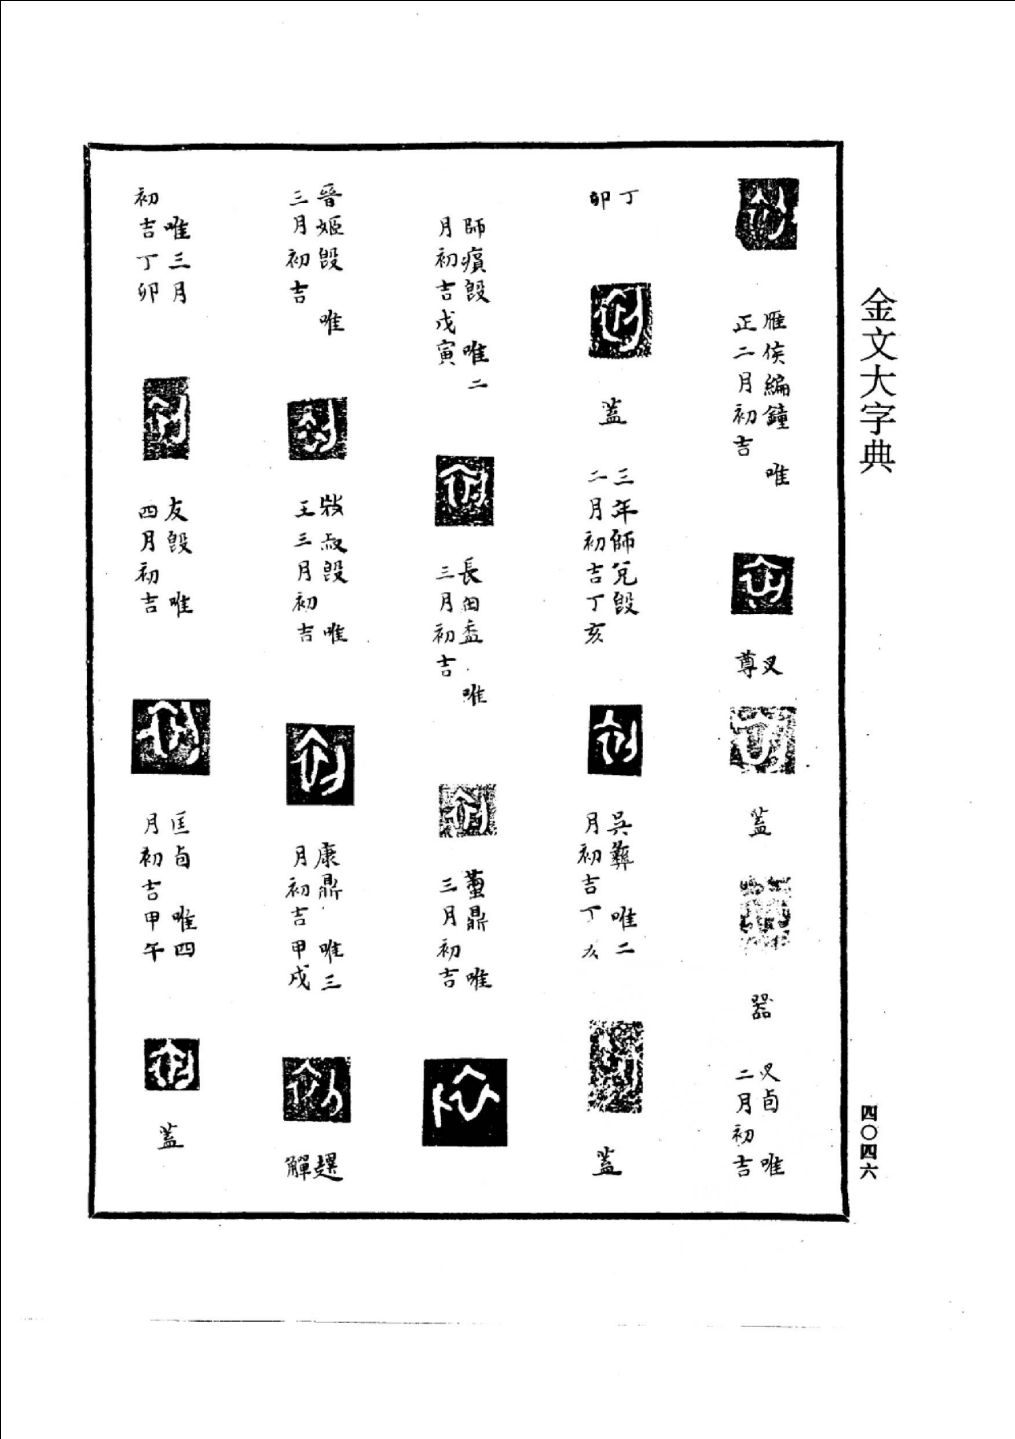 金文大字典
四〇四六
雁侯編鐘 唯
正二月初吉
尊
蓋
器
卣 唯
二月初吉
丁
卯
蓋
三年師兌𣪘
二月初吉丁亥
吳彝 唯二
月初吉丁亥
蓋
師𤸫𣪘 唯二
月初吉戊寅
長甶盉 唯
三月初吉
堇鼎 唯
三月初吉
晉姬𣪘 唯
三月初吉
叔𣪘 唯
王三月初吉
康鼎 唯三
月初吉甲戌
趩
觶
唯三月
初吉丁卯
友𣪘 唯
四月初吉
匡卣 唯四
月初吉甲午
蓋